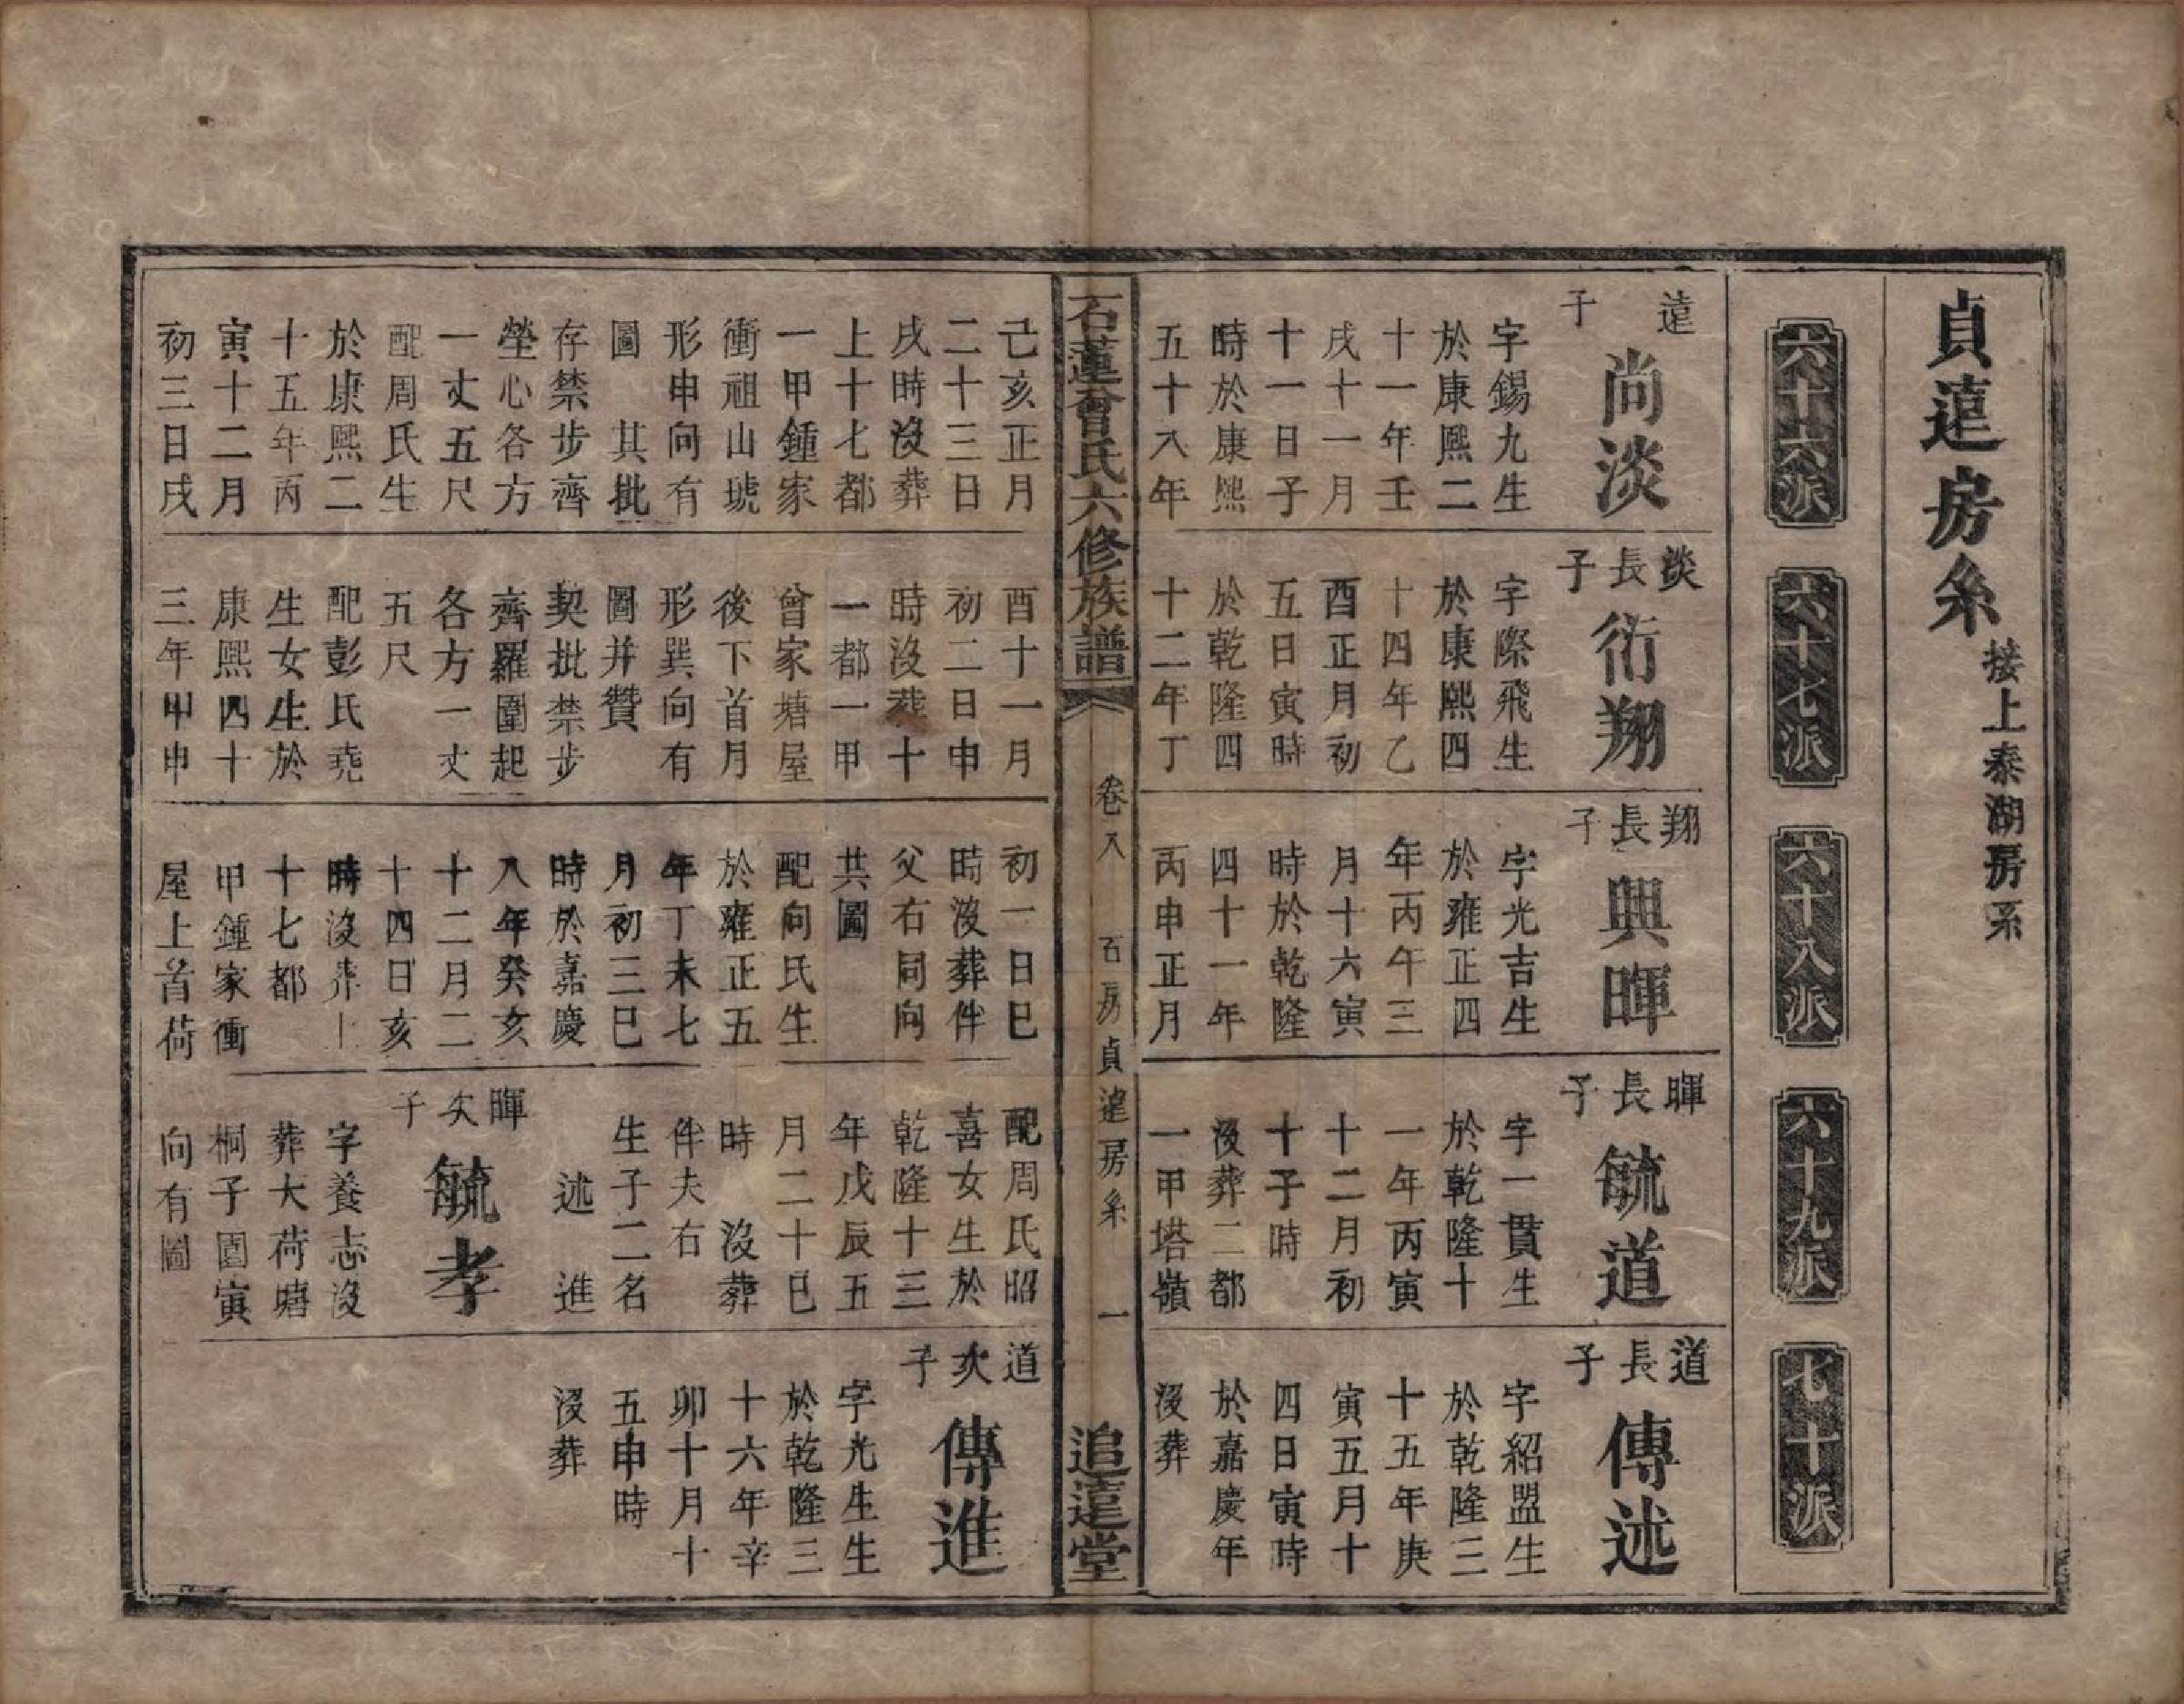 貞遠房糸
接上泰湖房系
六十六派
六十七派
六十八派
六十九派
七十派
遠子
尚淡
字錫九生
於康熙二
十一年壬
戌十一月
十一日子
時於康熙
五十八年
淡長子
衍翔
字際飛生
於康熙四
十四年乙
酉正月初
五日寅時
於乾隆四
十二年丁
翔長子
興暉
字光吉生
於雍正四
年丙午三
月十六寅
時於乾隆
四十一年
丙申正月
暉長子
毓道
字一貫生
於乾隆十
一年丙寅
十二月初
十子時
沒葬二都
一甲塔嶺
道長子
傳述
字紹盟生
於乾隆三
十五年庚
寅五月十
四日寅時
於嘉慶年
沒葬
石蓮曾氏六修族譜
卷八
石房貞遠房糸
一
追遠堂
己亥正月
二十三日
戌時沒葬
上十七都
一甲鍾家
衝祖山琥
形申向有
圖 其批
存禁步齊
塋心各方
一丈五尺
配周氏生
於康熙二
十五年丙
寅十二月
初三日戌
酉十一月
初二日申
時沒葬十
一都一甲
曾家塘屋
後下首月
形巽向有
圖并贊
契批禁步
齊羅圍起
各方一丈
五尺
配彭氏堯
生女生於
康熙四十
三年甲申
初一日巳
時沒葬伴
父右同向
共圖
配向氏生
於雍正五
年丁未七
月初三巳
時於嘉慶
八年癸亥
十二月二
十四日亥
時沒葬上
十七都
甲鍾家衝
屋上首荷
配周氏昭
喜女生於
乾隆十三
年戊辰五
月二十巳
時 沒葬
伴夫右
生子二名
述 進
暉次子
毓孝
字養志沒
葬大荷塘
桐子園寅
向有圖
道次子
傳進
字光生生
於乾隆三
十六年辛
卯十月十
五申時
沒葬